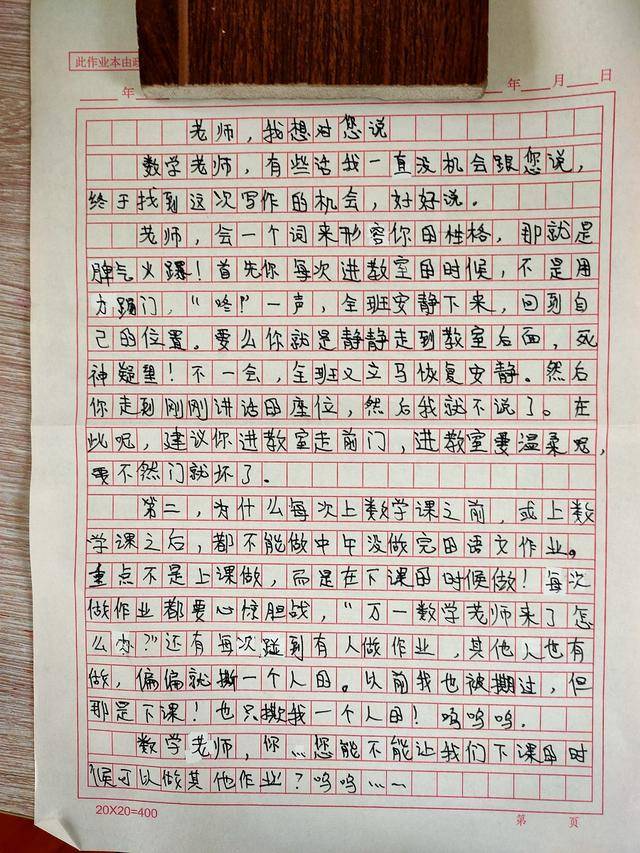 此作业本由政
年
年 月 日
老师,我想对您说
数学老师,有些话我一直没机会跟您说,
终于找到这次写作的机会,好好说。
老师,会一个词来形容你的性格,那就是
脾气火踝!首先你每次进教室的时候,不是用
力踢门,“咚!”一声,全班安静下来,回到自
己的位置。要么你就是静静走到教室后面,死
神凝望!不一会,全班又立马恢复安静。然后
你走到刚刚讲话的座位,然后我就不说了。在
此呢,建议你进教室走前门,进教室要温柔呢,
要不然门就坏了。
第二,为什么每次上数学课之前,或上数
学课之后,都不能做中午没做完的语文作业。
重点不是上课做,而是在下课的时候做!每次
做作业都要心惊胆战,“万一数学老师来了怎
么办?”还有每次碰到有人做作业,其他人也有
做,偏偏就撕一个人的。以前我也被撕过,但
那是下课!也只撕我一个人的!呜呜呜.
数学老师,你…您能不能让我们下课的时
候可以做其他作业?呜呜……
20X20=400
第 页